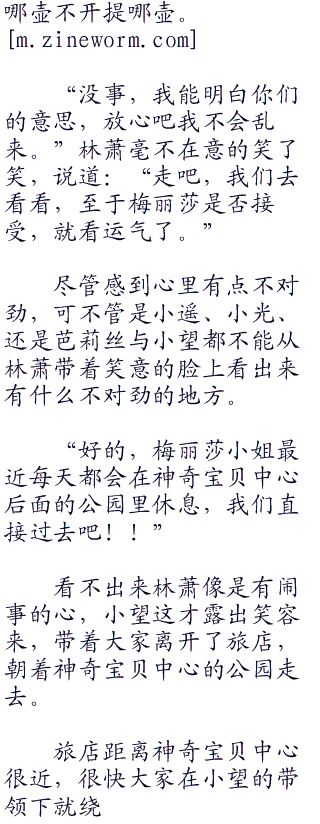 哪壶不开提哪壶。
[m.zineworm.com]
“没事，我能明白你们
的意思，放心吧我不会乱
来。”林萧毫不在意的笑了
笑，说道：“走吧，我们去
看看，至于梅丽莎是否接
受，就看运气了。”
尽管感到心里有点不对
劲，可不管是小遥、小光、
还是芭莉丝与小望都不能从
林萧带着笑意的脸上看出来
有什么不对劲的地方。
“好的，梅丽莎小姐最
近每天都会在神奇宝贝中心
后面的公园里休息，我们直
接过去吧！！”
看不出来林萧像是有闹
事的心，小望这才露出笑容
来，带着大家离开了旅店，
朝着神奇宝贝中心的公园走
去。
旅店距离神奇宝贝中心
很近，很快大家在小望的带
领下就绕